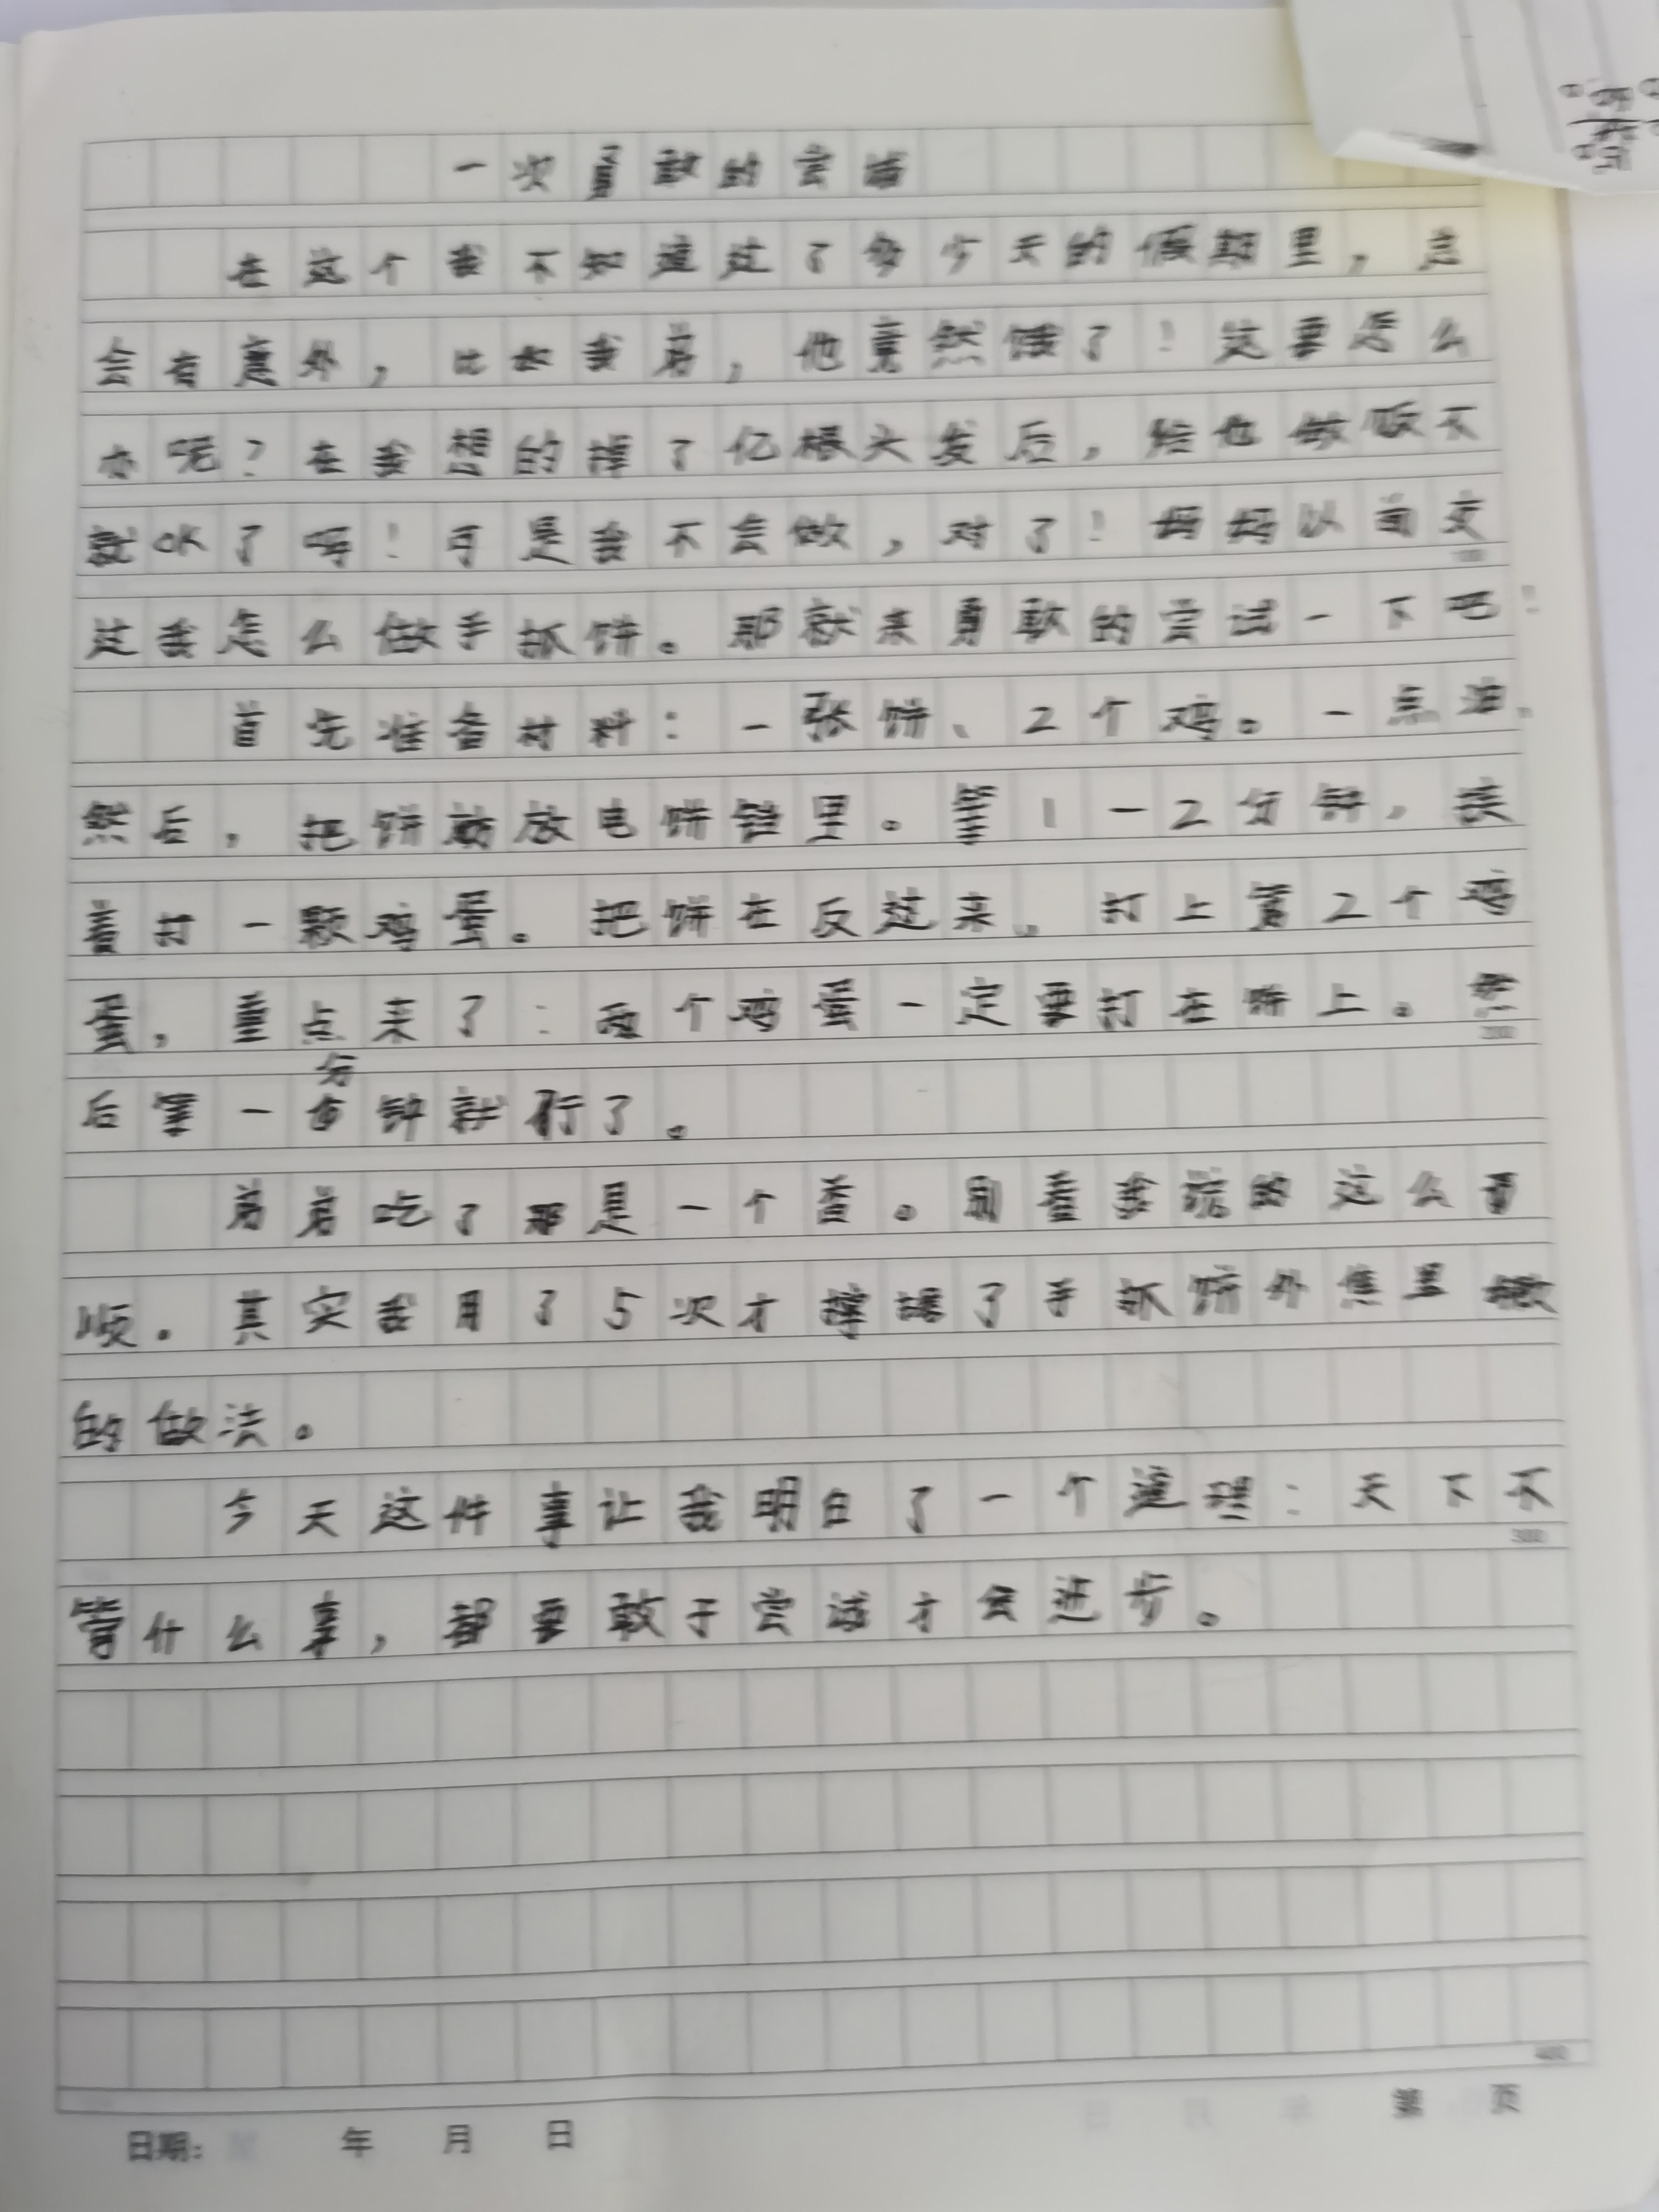 一次勇敢的尝试
在这个我不知道过了多少天的假期里，总
会有意外，比如我弟，他竟然饿了！这要怎么
办呢？在我想的掉了亿根头发后，给他做饭不
就OK了吗！可是我不会做，对了！妈妈以前交
过我怎么做手抓饼。那就来勇敢的尝试一下吧！
首先准备材料：一张饼、2个鸡。一点油。
然后，把饼放电饼铛里。等1一2分钟，接
着打一颗鸡蛋。把饼在反过来。打上第2个鸡
蛋，重点来了：两个鸡蛋一定要打在饼上。然
后等一分钟就行了。
弟弟吃了那是一个香。别看我说的这么
顺。其实我用了5次才掌握了手抓饼外焦里嫩
的做法。
今天这件事让我明白了一个道理：天下不
管什么事，都要敢于尝试才会进步。
日期： 年 月 日
第 页